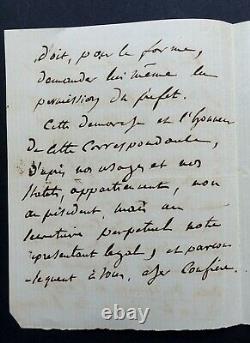 doit, pour la forme,
demander lui même la
permission du préfet.
Cette démarche et l'honneur
de cette correspondance,
d'après nos usages et nos
statuts, appartiennent, non
au président, mais au
secrétaire perpétuel notre
représentant légal, et par con-
-séquent à vous, cher confrère.
ebay